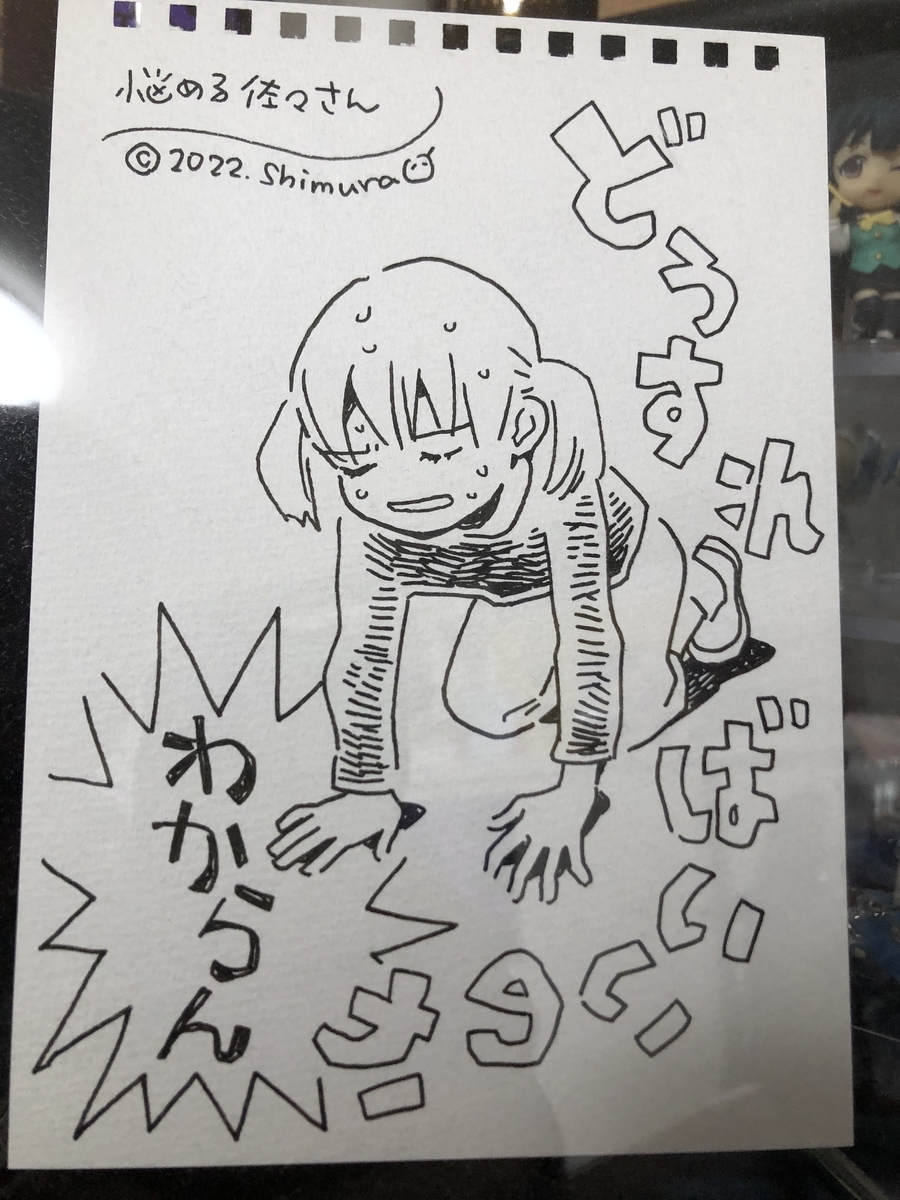 悩める佐々さん
©2022. Shimura
どうすればいいのさ
わからん